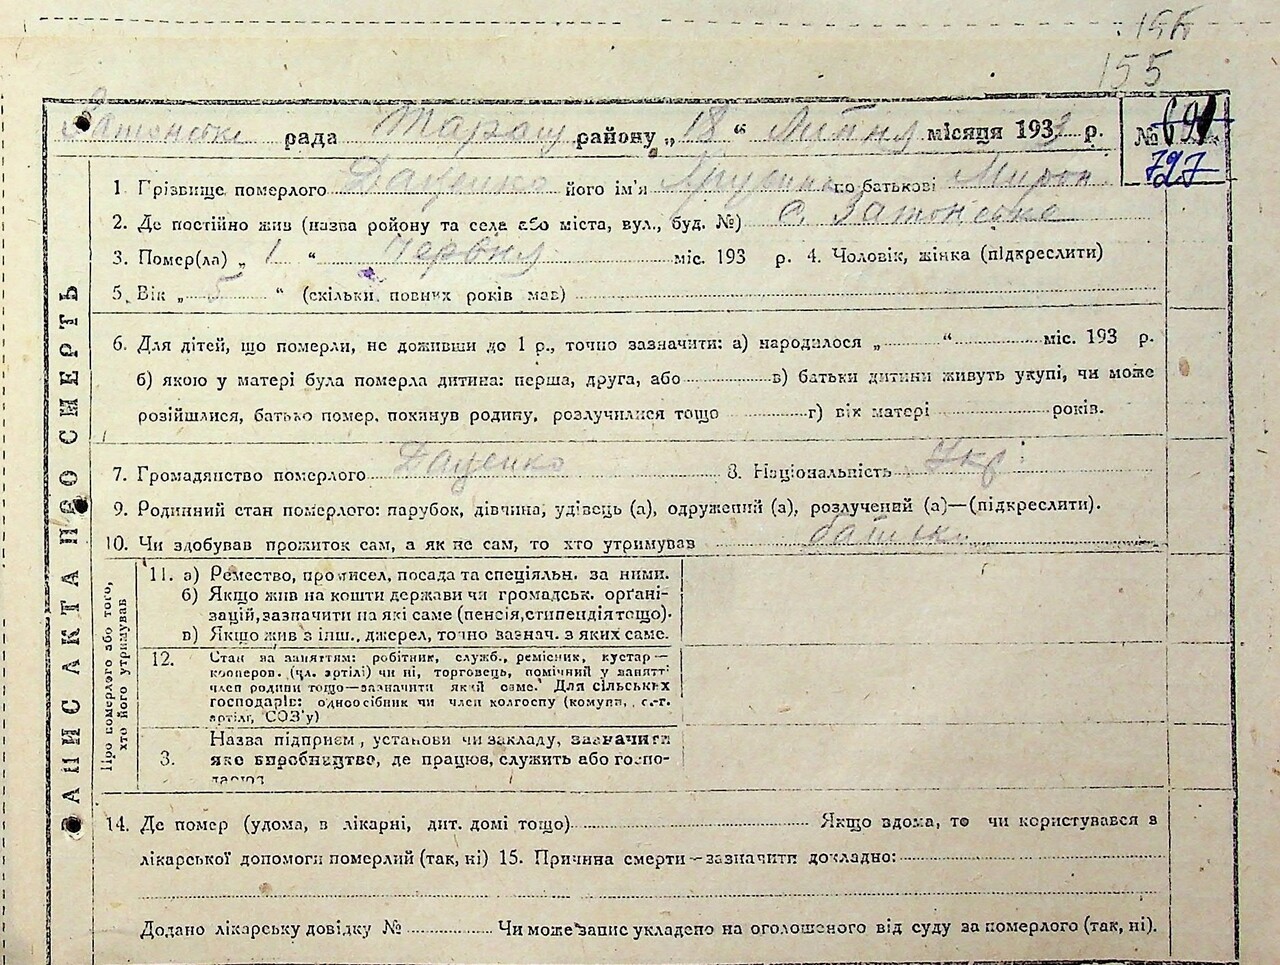 155
рада Таращ району „18“ Липня місяця 1933 р. № 727
1. Прізвище померлого Даценко його ім'я по батькові Мирон
2. Де постійно жив (назва ройону та села або міста, вул., буд. №) с. Затонське
3. Помер(ла) „1“ Червня міс. 193 р. 4. Чоловік, жінка (підкреслити)
5. Вік „5“ (скільки повних років мав)
6. Для дітей, що померли, не доживши до 1 р., точно зазначити: а) народилося „ “ міс. 193 р.
б) якою у матері була померла дитина: перша, друга, або в) батьки дитини живуть укупі, чи може
розійшлися, батько помер, покинув родину, розлучилися тощо г) вік матері років.
7. Громадянство померлого Даценко 8. Національність Укр
9. Родинний стан померлого: парубок, дівчина, удівець (а), одружений (а), розлучений (а)—(підкреслити).
10. Чи здобував прожиток сам, а як не сам, то хто утримував батьки
11. а) Ремество, промисел, посада та спеціяльн. за ними.
б) Якщо жив на кошти держави чи громадськ. орґані-
зацій, зазначити на які саме (пенсія, стипендія тощо).
в) Якщо жив з інш., джерел, точно зазнач. з яких саме.
12. Стан за заняттям: робітник, служб., ремісник, кустар—
кооперов. (чл. артілі) чи ні, торговець, помічний у занятті
член родини тощо—зазначити який саме. Для сільських
господарів: одноосібник чи член колгоспу (комуни, с.-г.
артілі, СОЗ'у)
3. Назва підприєм, установи чи закладу, зазначити
яке виробництво, де працює, служить або госпо-
14. Де помер (удома, в лікарні, дит. домі тощо) Якщо вдома, то чи користувався з
лікарської допомоги померлий (так, ні) 15. Причина смерти—зазначити докладно:
Додано лікарську довідку № Чи може запис укладено на оголошеного від суду за померлого (так, ні).
АПИС АКТА ПРО СМЕРТЬ
Про померлого або того,
хто його утримував